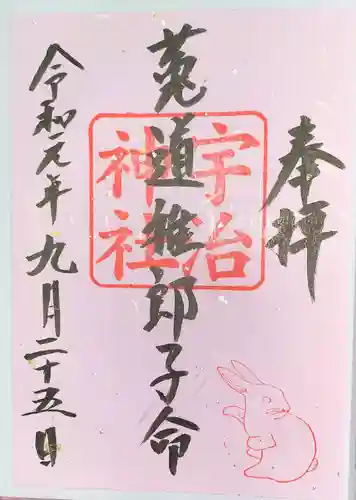 奉拝
菟道稚郎子命
宇治
神社
令和元年九月二十五日